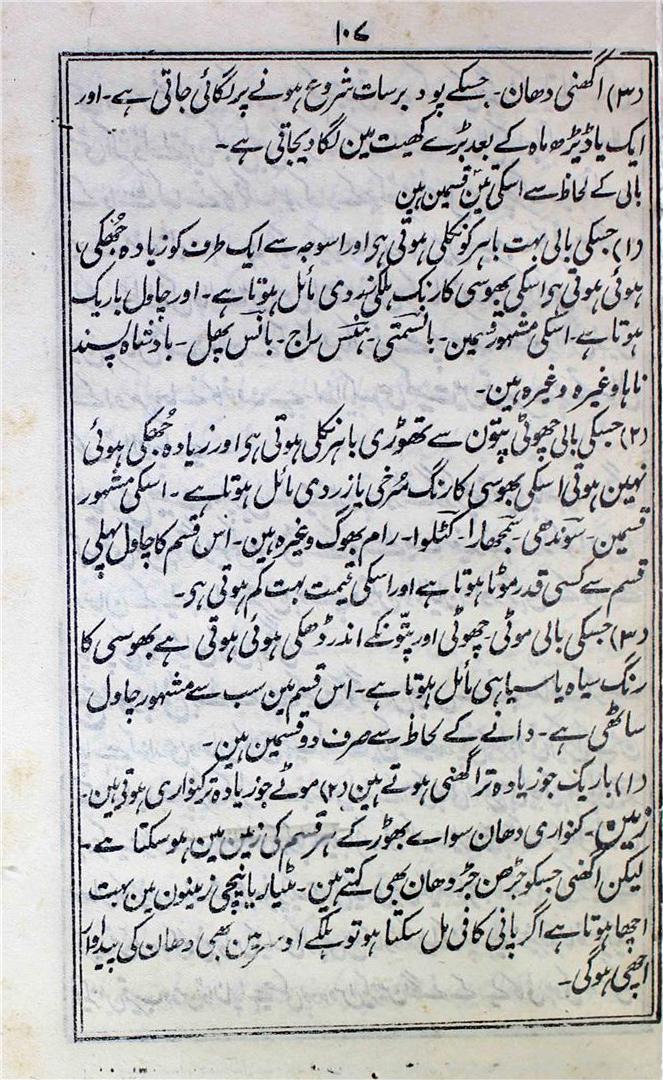 ۱۰۷
(۳) اگھنی دھان۔ جسکے پود برسات شروع ہونے پر لگائی جاتی ہے۔ اور
ایک یا ڈیڑھ ماہ کے بعد بڑے کھیت مین لگا دیجاتی ہے۔
بالی کے لحاظ سے اسکی تین قسمین ہین
(۱) جسکی بالی بہت باہر کو نکلی ہوتی ہی اور اسوجہ سے ایک طرف کو زیادہ جُھکی
ہوئی ہوتی ہی اسکی بھوسی کا رنگ ہلکی زردی مائل ہوتا ہے۔ اور چاول باریک
ہوتا ہے۔ اسکی مشہور قسمین۔ باسمتی۔ ہنس راج۔ بانس پھل۔ بادشاہ پسند
ناہا وغیرہ وغیرہ ہین۔
(۲) جسکی بالی چھوٹی پتون سے تھوڑی باہر نکلی ہوتی ہی اور زیادہ جُھکی ہوئی
نہین ہوتی اسکی بھوسی کا رنگ سُرخی یا زردی مائل ہوتا ہے۔ اسکی مشہور
قسمین۔ سوندھی۔ سمجھارا۔ کٹلوا۔ رام بھوگ وغیرہ ہین۔ اس قسم کا چاول پہلی
قسم سے کسی قدر موٹا ہوتا ہے اور اسکی قیمت بہت کم ہوتی ہی۔
(۳) جسکی بالی موٹی۔ چھوٹی اور پتونکے اندر ڈھکی ہوئی ہوتی ہے بھوسی کا
رنگ سیاہ یا سیاہی مائل ہوتا ہے۔ اس قسم مین سب سے مشہور چاول
ساٹھی ہے۔ دانے کے لحاظ سے صرف دو قسمین ہین۔
(۱) باریک جو زیادہ تر اگھنی ہوتے ہین (۲) موٹے جو زیادہ تر کنواری ہوتی ہین۔
زمین۔ کنواری دھان سواے بھوڑ کے ہر قسم کی زمین مین ہو سکتا ہے۔
لیکن اگھنی جسکو جڑھن جڑ دھان بھی کہتے ہین۔ مٹیار یا نیچی زمینون مین بہت
اچھا ہوتا ہے اگر پانی کافی مل سکتا ہو تو ہلکے اوسر مین بھی دھان کی پیداوار
اچھی ہوگی۔